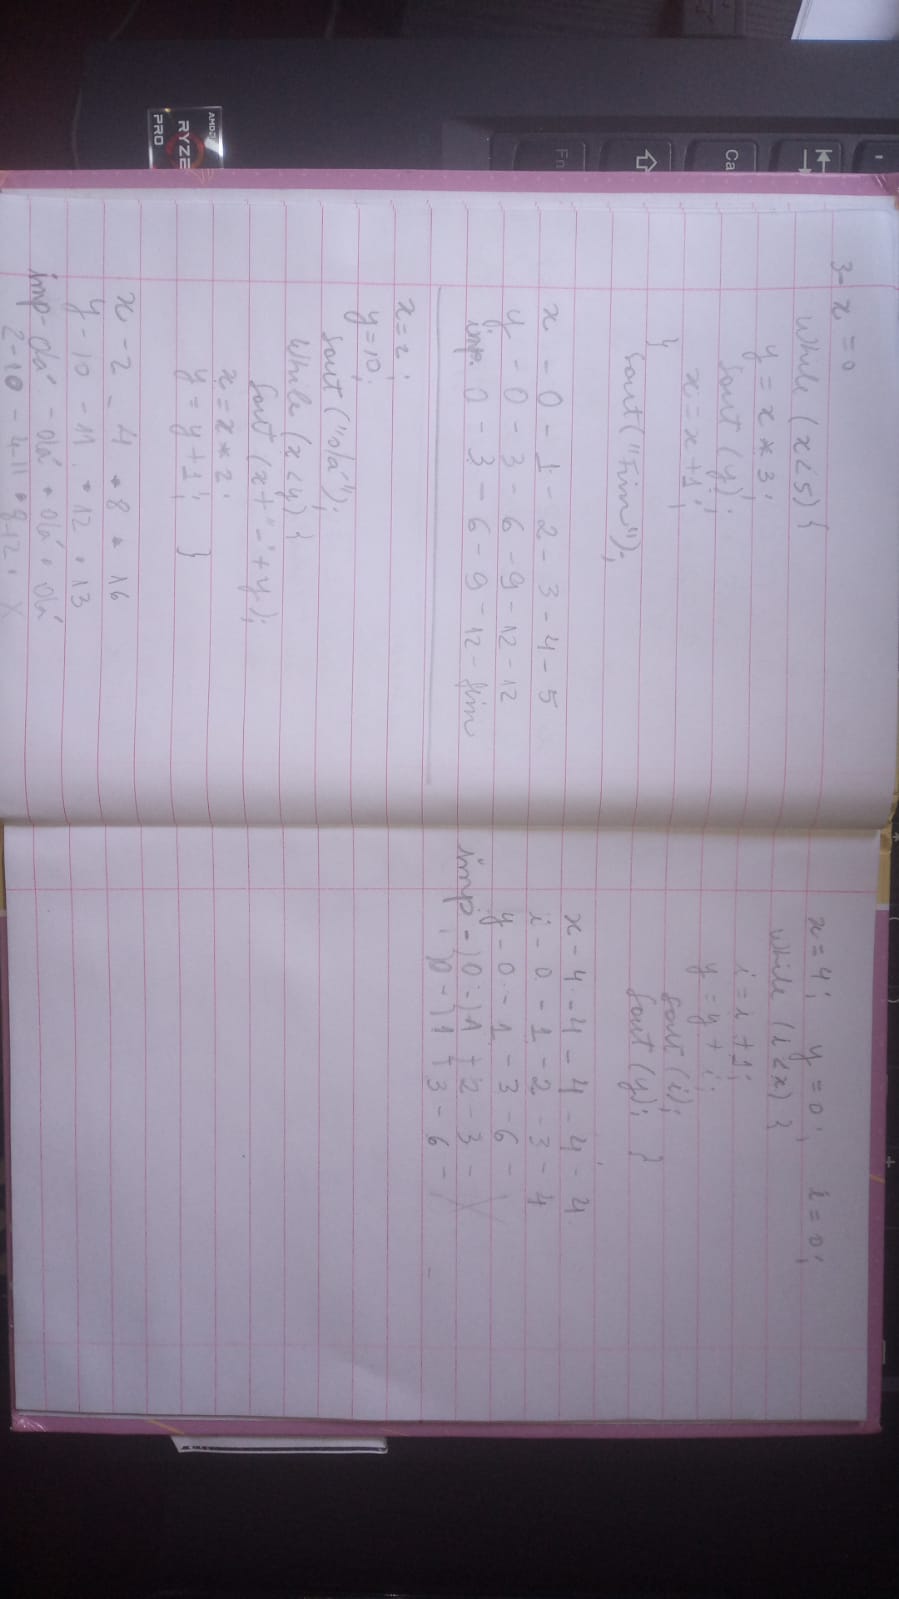 3- x = 0
while (x<5) {
y = x * 3;
Sout (y);
x = x+1;
}
Sout("Fim");
x - 0 - 1 - 2 - 3 - 4 - 5
y - 0 - 3 - 6 - 9 - 12 - 12
imp. 0 - 3 - 6 - 9 - 12 - fim
x = 2;
y = 10;
Sout ("olá");
While (x < y) {
Sout (x+"-"+y);
x = x * 2;
y = y+1; }
x - 2 - 4 • 8 • 16
y - 10 - 11 . • 12 • 13
imp- olá - olá • olá • olá
2-10 - 4-11 • 8-12 • X
x = 4; y = 0; i = 0;
while (i < x) {
i = i + 1;
y = y + i;
Sout (i);
Sout (y); }
x - 4 - 4 - 4 - 4 - 4
i - 0 - 1 - 2 - 3 - 4
y - 0 - 1 - 3 - 6 -
imp - 0 - 1 - 2 - 3 -
0 - 1 - 3 - 6 -
Ca
Fn
AMD
RYZE
PRO